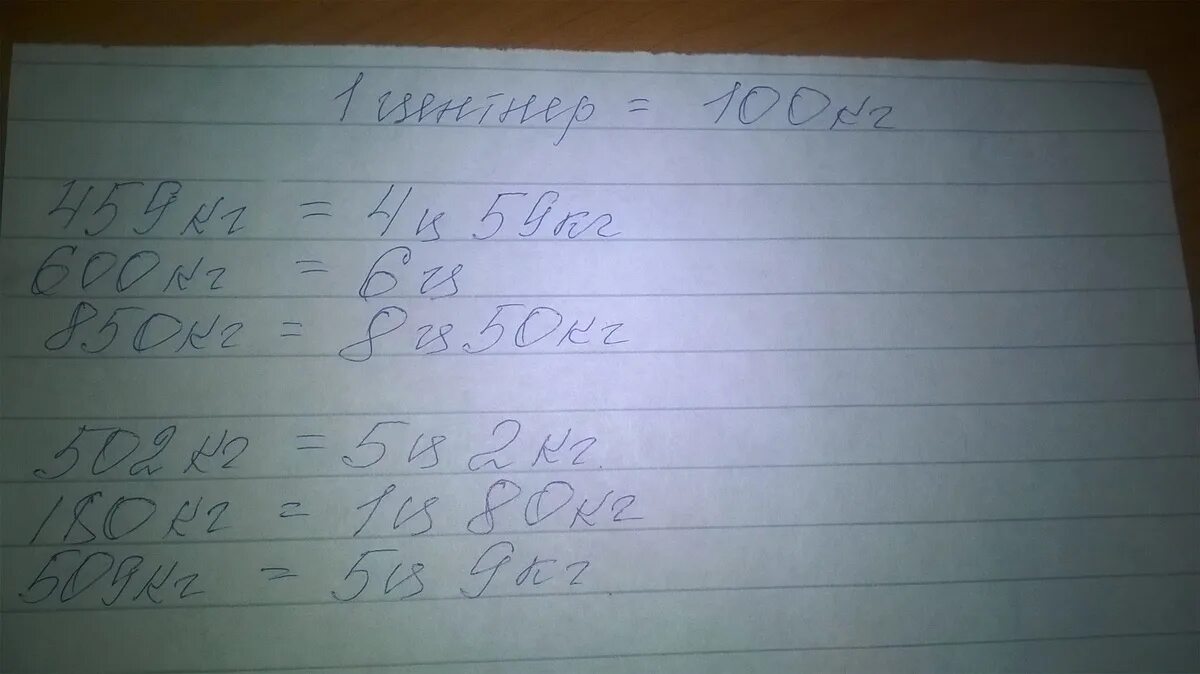 1 центнер = 100кг
459кг = 4ц 59кг
600кг = 6ц
850кг = 8ц 50кг
502кг = 5ц 2кг.
180кг = 1ц 80кг
509кг = 5ц 9кг.